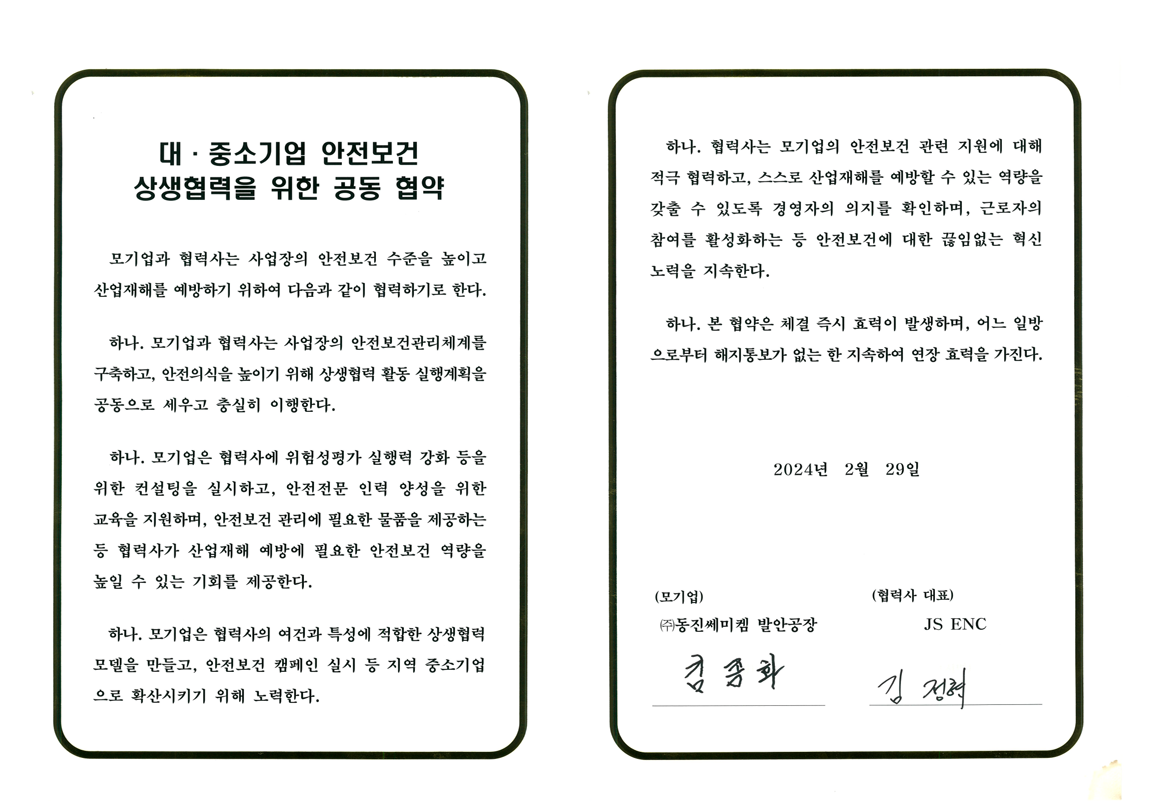 대 · 중소기업 안전보건
상생협력을 위한 공동 협약
모기업과 협력사는 사업장의 안전보건 수준을 높이고
산업재해를 예방하기 위하여 다음과 같이 협력하기로 한다.
하나. 모기업과 협력사는 사업장의 안전보건관리체계를
구축하고, 안전의식을 높이기 위해 상생협력 활동 실행계획을
공동으로 세우고 충실히 이행한다.
하나. 모기업은 협력사에 위험성평가 실행력 강화 등을
위한 컨설팅을 실시하고, 안전전문 인력 양성을 위한
교육을 지원하며, 안전보건 관리에 필요한 물품을 제공하는
등 협력사가 산업재해 예방에 필요한 안전보건 역량을
높일 수 있는 기회를 제공한다.
하나. 모기업은 협력사의 여건과 특성에 적합한 상생협력
모델을 만들고, 안전보건 캠페인 실시 등 지역 중소기업
으로 확산시키기 위해 노력한다.
하나. 협력사는 모기업의 안전보건 관련 지원에 대해
적극 협력하고, 스스로 산업재해를 예방할 수 있는 역량을
갖출 수 있도록 경영자의 의지를 확인하며, 근로자의
참여를 활성화하는 등 안전보건에 대한 끊임없는 혁신
노력을 지속한다.
하나. 본 협약은 체결 즉시 효력이 발생하며, 어느 일방
으로부터 해지통보가 없는 한 지속하여 연장 효력을 가진다.
2024년 2월 29일
(모기업)
㈜동진쎄미켐 발안공장
김종화
(협력사 대표)
JS ENC
김정혁